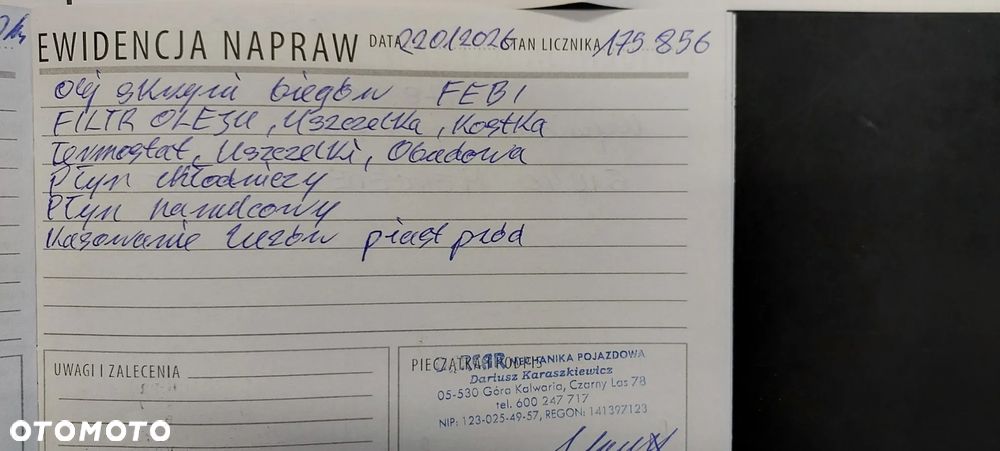 EWIDENCJA NAPRAW DATA 22.01.2026 STAN LICZNIKA 175 856
Olej skrzyni biegów FEBI
FILTR OLEJU, Uszczelka, Kostka
Termostat, Uszczelki, Obudowa
Płyn chłodniczy
Płyn hamulcowy
Kasowanie luzów piast przód
UWAGI I ZALECENIA
PIECZĄTKA I PODPIS
MECHANIKA POJAZDOWA
Dariusz Karaszkiewicz
05-530 Góra Kalwaria, Czarny Las 78
tel. 600 247 717
NIP: 123-025-49-57, REGON: 141397123
OTOMOTO